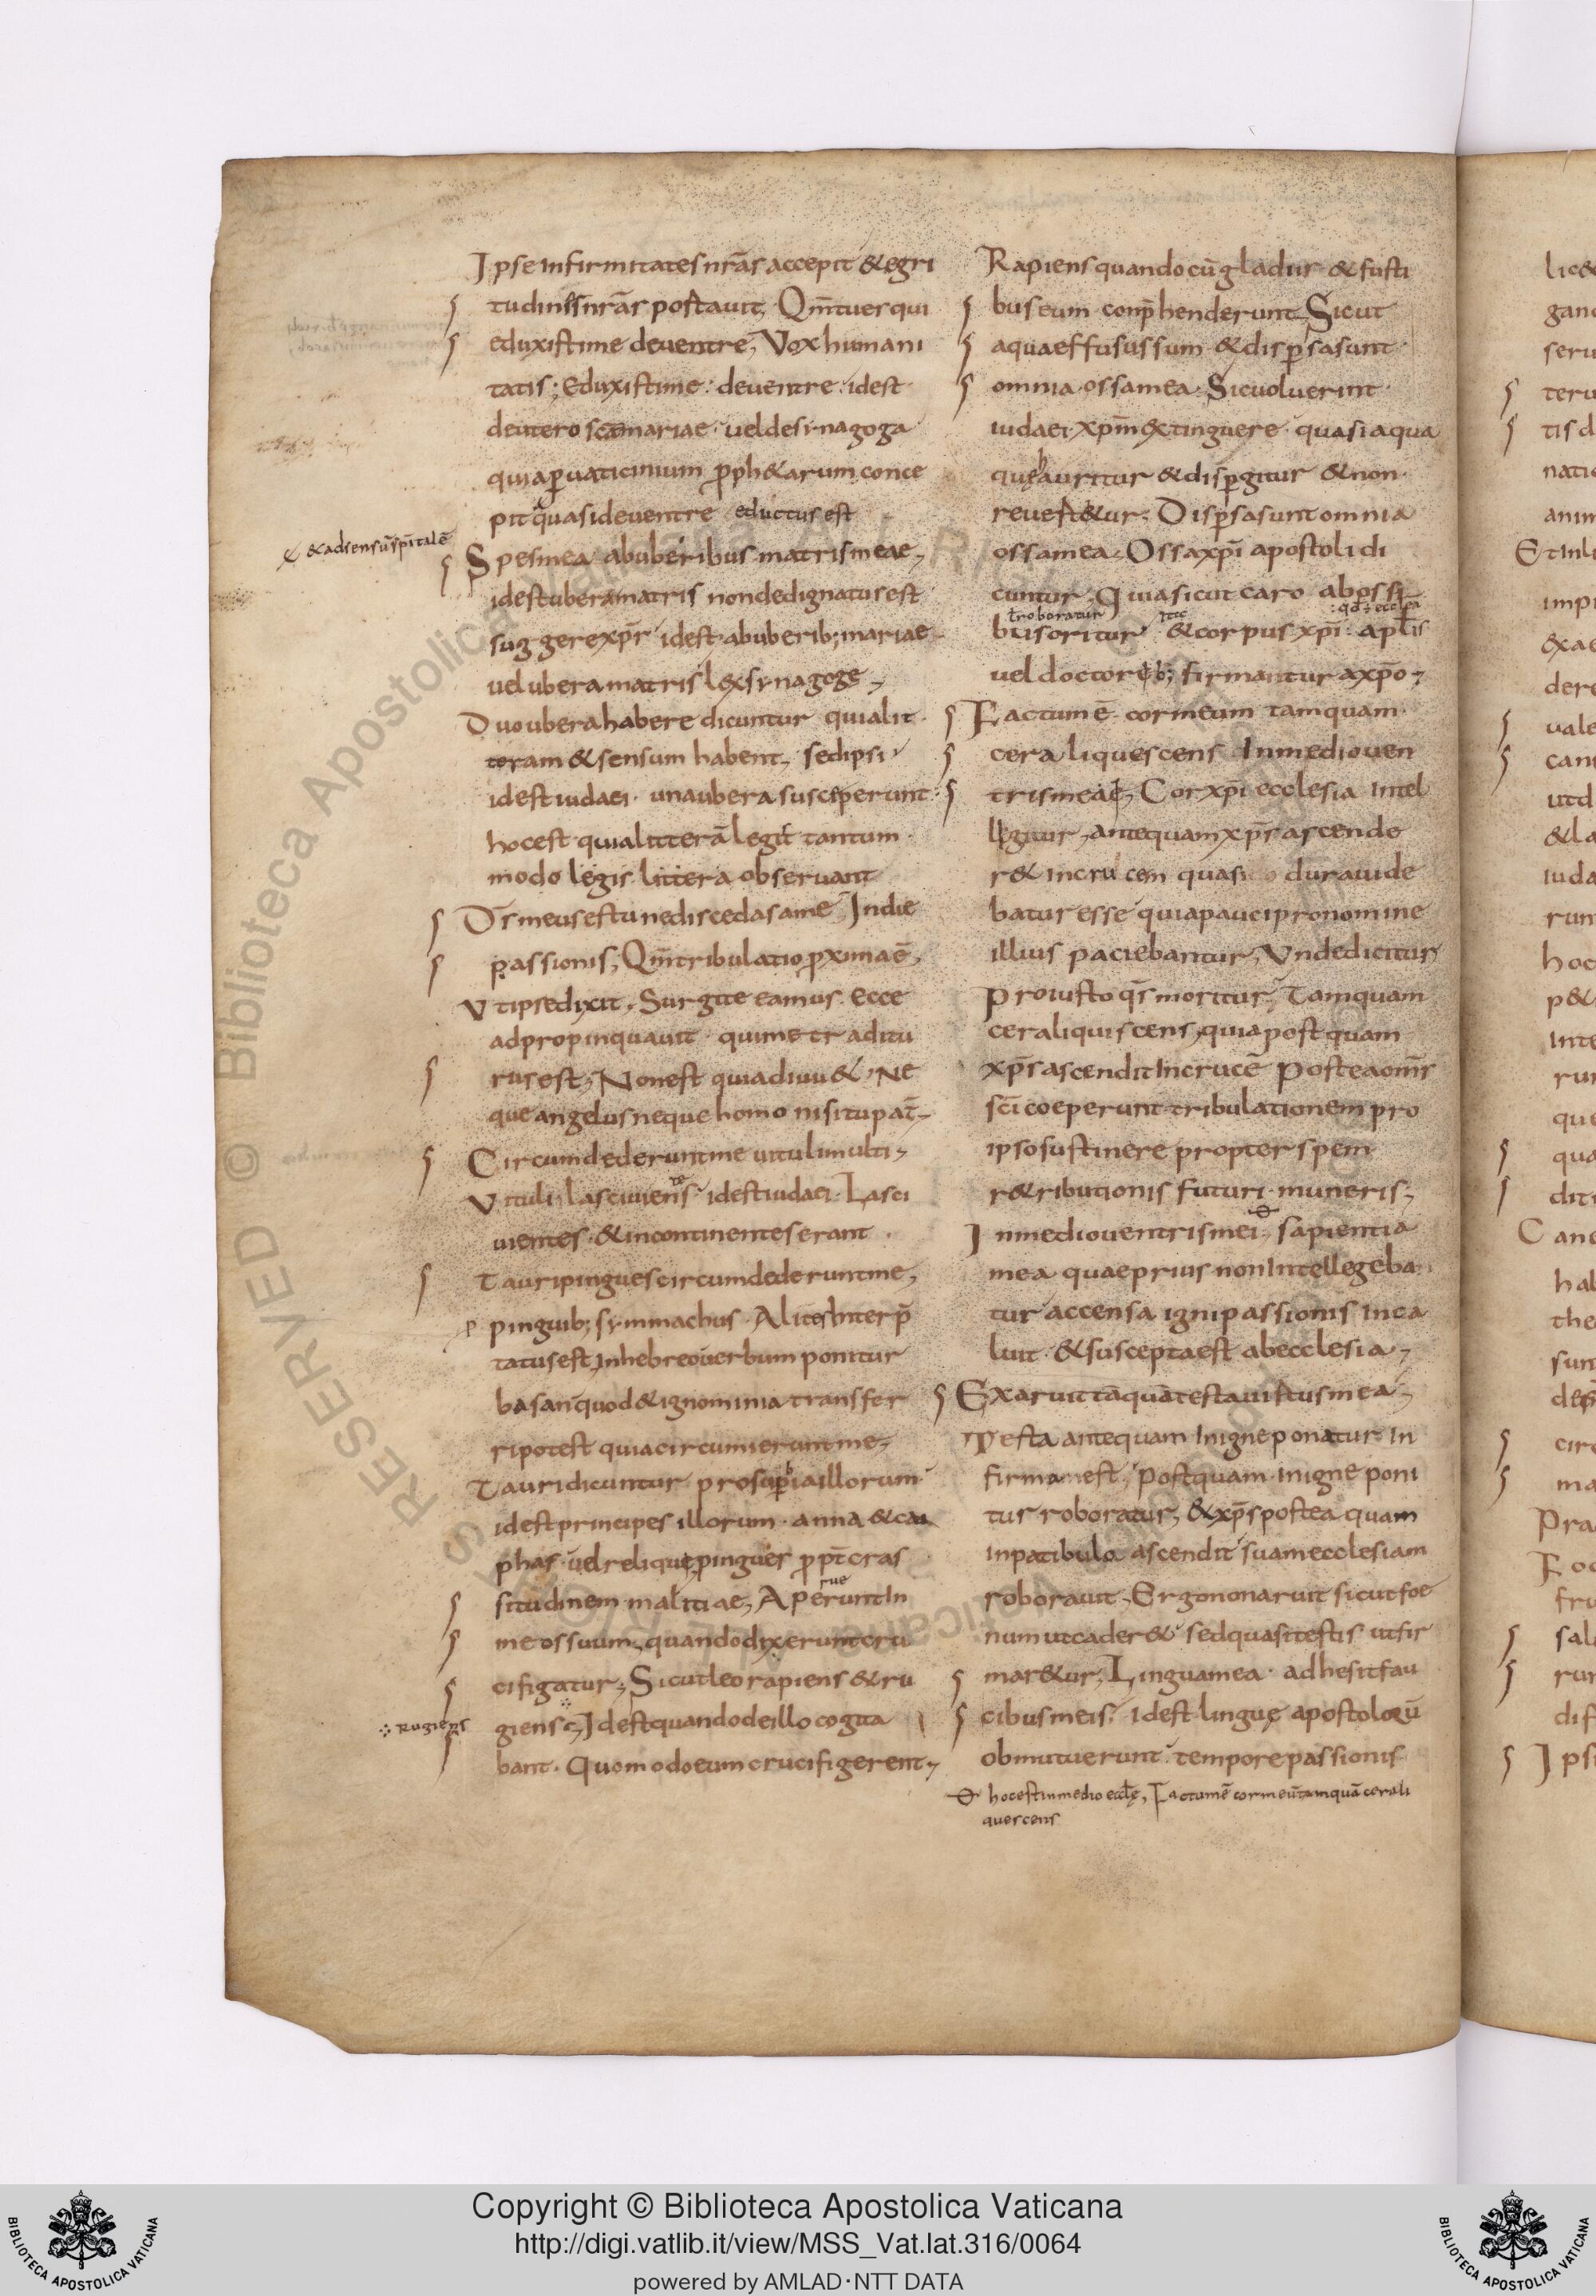 Ipse infirmitates nr̄as accepit & egri
tudines nr̄as portauit, Qm̄ tu es qui
eduxisti me de uentre, Vox humani
tatis; Eduxisti me. de uentre. id est
de utero scāe mariae. uel de synagoga
qui aꝑ uaticinium ꝓph&arum conce
pit quasi de uentre eductus est
& ad sensū sp̄italē
Spes mea ab uberibus matris meae,
id est ubera matris non dedignatus est
suggere xp̄s id est ab uberib; mariae
uel ubera matris l&x synagoge,
Duo ubera habere dicuntur quia lit
teram & sensum habent, sed ipsi
id est iudaei. una ubera susceperunt
hoc est quia litterā legis tantum
modo legis littera obseruant
Dr̄ meus es tu ne discedas a me In die
passionis, Qm̄ tribulatio ꝓxima ē,
Vt ipse dixit, Surgite eamus. ecce
adpropinquauit qui me traditu
rus est, Non est qui adiuu&, Ne
que angelus neque homo nisi tu pat̄
Circumdederunt me uituli multi,
Vituli lasciuiens te id est iudaei. Lasci
uientes. & incontinentes erant
Tauri pingues circumdederunt me,
pinguib; symmachus. Alites interp̄
tatus est, in hebreo uerbum ponitur
basan quod & ignominia transfer
ri potest quia circumierunt me,
Tauri dicuntur pro suꝑbia illorum
id est principes illorum. anna & cai
phas. uel relique pingues ꝓpt̄ cras
situdinem malitiae, Aperuerunt in
me os suum, quando dixerunt cru
cifigatur, Sicut leo rapiens & ru
Rugiens
giens, Id est quando de illo cogita
bant. Quomodo eum crucifigerent,
Rapiens quando cū gladiis & fusti
bus eum conp̄henderunt, Sicut
aqua effusus sum & disꝑsa sunt
omnia ossa mea. Sic uoluerunt
iudaei xp̄m extinguere quasi aqua
que hauritur & disꝑgitur & non
reuert&ur. Disꝑsa sunt omnia
ossa mea. Ossa xp̄i apostoli di
cuntur. Quia sicut caro ab ossi
t̄ roboratur
bus oritur & corpus xp̄i apl̄is
uel doctorib; firmantur a xp̄o,
Factum ē cor meum tamquam
cera liquescens In medio uen
tris meae, Cor xp̄i ecclesia intel
legitur, antequam xp̄s ascende
r& in crucem quasi dura uide
batur esse quia pauci pro nomine
illius paciebantur, Vnde dicitur
Pro iusto q̄s moritur, Tamquam
cera liquiscens, quia postquam
xp̄s ascendit in crucē postea om̄s
sc̄i coeperunt tribulationem pro
ipso sustinere propter spem
r&ributionis futuri muneris,
In medio uentris mei, sapientia
mea quae prius non intellegeba
tur accensa igni passionis inca
luit & suscepta est ab ecclesia,
Exaruit tāquā testa uirtus mea,
Testa antequam in igne ponatur in
firma est, Postquam in igne poni
tur roboratur, & xp̄s postea quam
in patibulo ascendit suam ecclesiam
roborauit, Ergo non aruit sicut foe
num ut cader& sed quasi testis ut fir
mar&ur, Lingua mea. adhesit fau
cibus meis. id est lingue apostolorū
obmutuerunt tempore passionis
hoc est in medio eccl̄e, Factum ē cor meū tamquā cera li
quescens
Copyright © Biblioteca Apostolica Vaticana
http://digi.vatlib.it/view/MSS_Vat.lat.316/0064
powered by AMLAD·NTT DATA
BIBLIOTECA APOSTOLICA VATICANA
BIBLIOTECA APOSTOLICA VATICANA